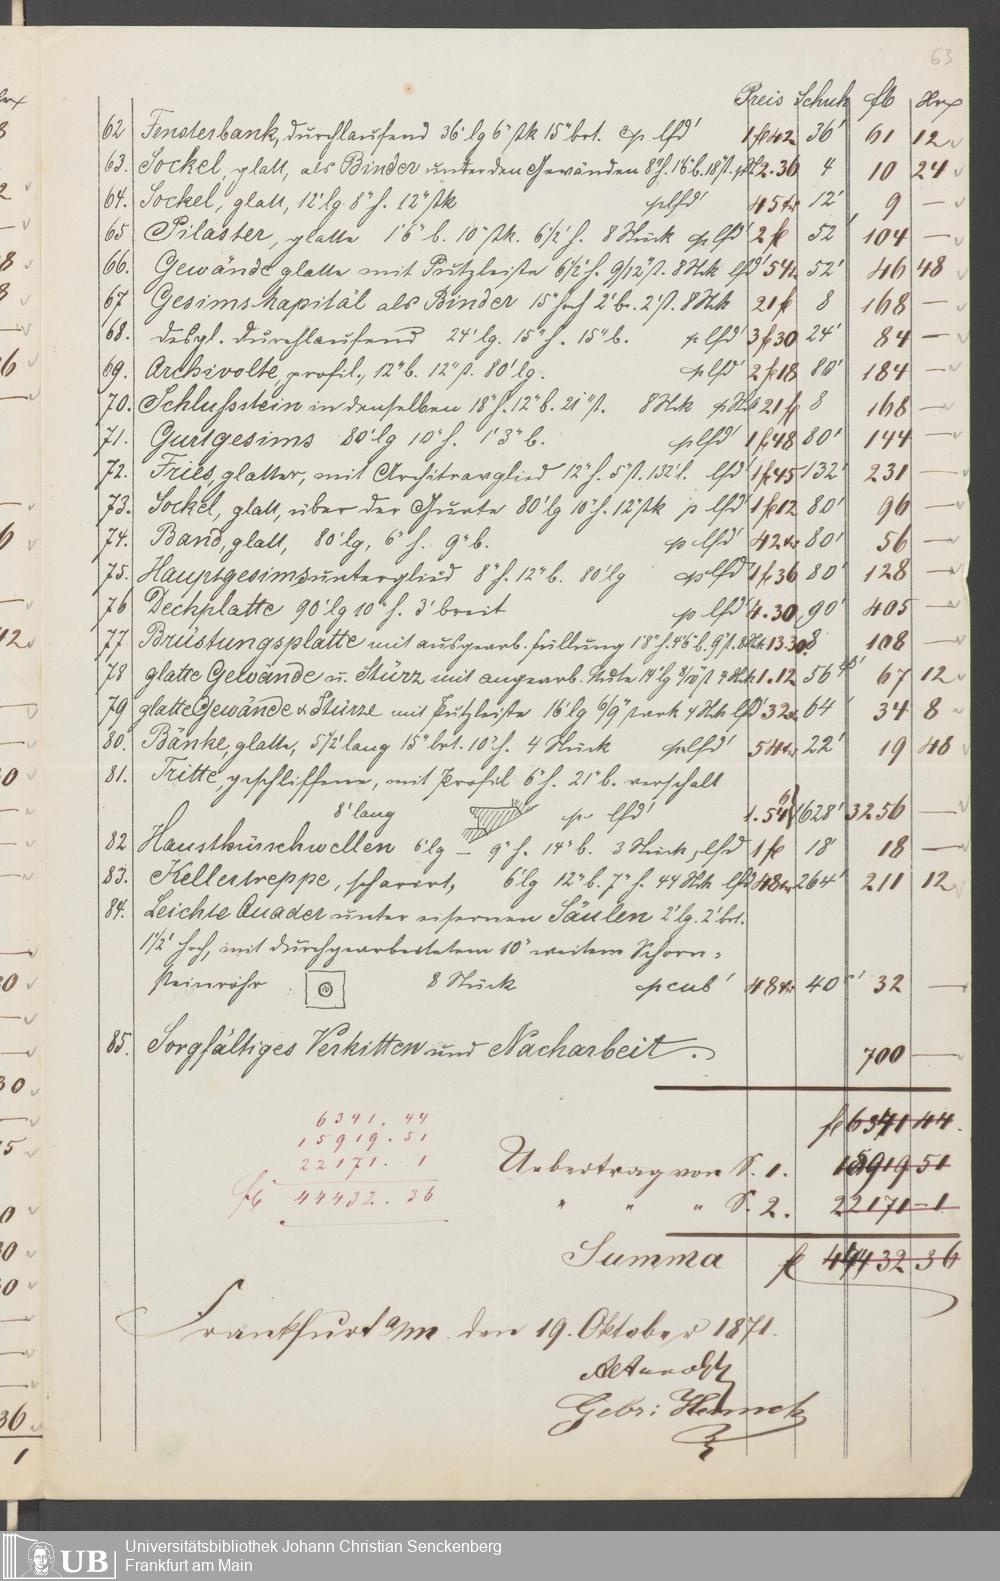 63
Preis Schuh fl Krz
62 Fensterbank, durchlaufend 36' lg 6" stk 15" brt. p lfd' 1 fl 42 36' 61 12
63. Sockel, glatt, als Binder unter den Gewänden 8" h. 1'6" b. 18" st. p Stk 2.36 4 10 24
64. Sockel, glatt, 12' lg 8" h. 12" stk p lfd' 45 kr 12' 9 —
65 Pilaster, glatte 1'6" b. 10" stk. 6 1/2' h. 8 Stück p lfd' 2 fl 52' 104 —
66. Gewände glatte mit Putzleiste 6 1/2' h. 9/12" st. 8 Stk lfd' 54 kr 52' 46 48
67 Gesimskapitäl als Binder 15" hoch 2' b. 2' st. 8 Stk 21 fl 8 168 —
68. desgl. durchlaufend 24' lg. 15" h. 15" b. p lfd' 3 fl 30 24' 84 —
69. Archivolte, profil., 12" b. 12" st. 80' lg. p lfd' 2 fl 18 80' 184 —
70. Schlußstein in denselben 18" h. 12" b. 21" st. 8 Stk p Stk 21 fl 8 168 —
71. Gurtgesims 80' lg 10" h. 1' 3" b. p lfd' 1 fl 48 80' 144 —
72. Fries, glatter, mit Architravglied 12" h. 5" st. 132' l. lfd' 1 fl 45 132' 231 —
73. Sockel, glatt, über der Gurte 80' lg 10" h. 12" stk p lfd' 1 fl 12 80' 96 —
74. Band, glatt, 80' lg, 6" h. 9" b. p lfd' 42 kr 80' 56 —
75. Hauptgesimsunterglied 8" h. 12" b. 80' lg p lfd' 1 fl 36 80' 128 —
76 Deckplatte 90' lg 10" h. 3' breit p lfd' 4.30 90' 405 —
77 Brüstungsplatte mit ausgearb. Füllung 1'8" h. 4'6" b. 9" st. 8 Stk 13.30 8 108 —
78 glatte Gewände u. Stürz mit angearb. 14' lg 8/10" st 4 Stk 1.12 56' 67 12
79 glatte Gewände & Stürze mit Putzleiste 16' lg 6/9" stark 4 Stk lfd' 32 kr 64' 34 8
80. Bänke, glatte, 5 1/2' lang 15" brt. 10" h. 4 Stück p lfd' 54 kr 22' 19 48
81. Tritte, geschliffene, mit Profil 6" h. 21" b. verschalt
8' lang p lfd' 1.54 1628' 3256 —
82 Hausthürschwellen 6' lg — 9" h. 14" b. 3 Stück, lfd' 1 fl 18' 18 —
83. Kellertreppe, scharirt, 6' lg 12" b. 7" h. 44 Stk lfd' 48 kr 264' 211 12
84. Leichte Quader unter eisernen Säulen 2' lg. 2' brt.
1 1/2' hoch, mit durchgearbeitetem 10" weitem Schorn=
steinrohr 8 Stück p cub' 48 kr 40 c' 32 —
85. Sorgfältiges Verkitten und Nacharbeit. 700 —
fl 6341 44
6341. 44
15919. 51
22171. 1
fl 44432. 36
Uebertrag von S. 1. 15919 51
" " " S. 2. 22171 — 1
Summa fl 44432 36
Frankfurt a/M. den 19. Oktober 1871.
Gebr:
Universitätsbibliothek Johann Christian Senckenberg
Frankfurt am Main
UB